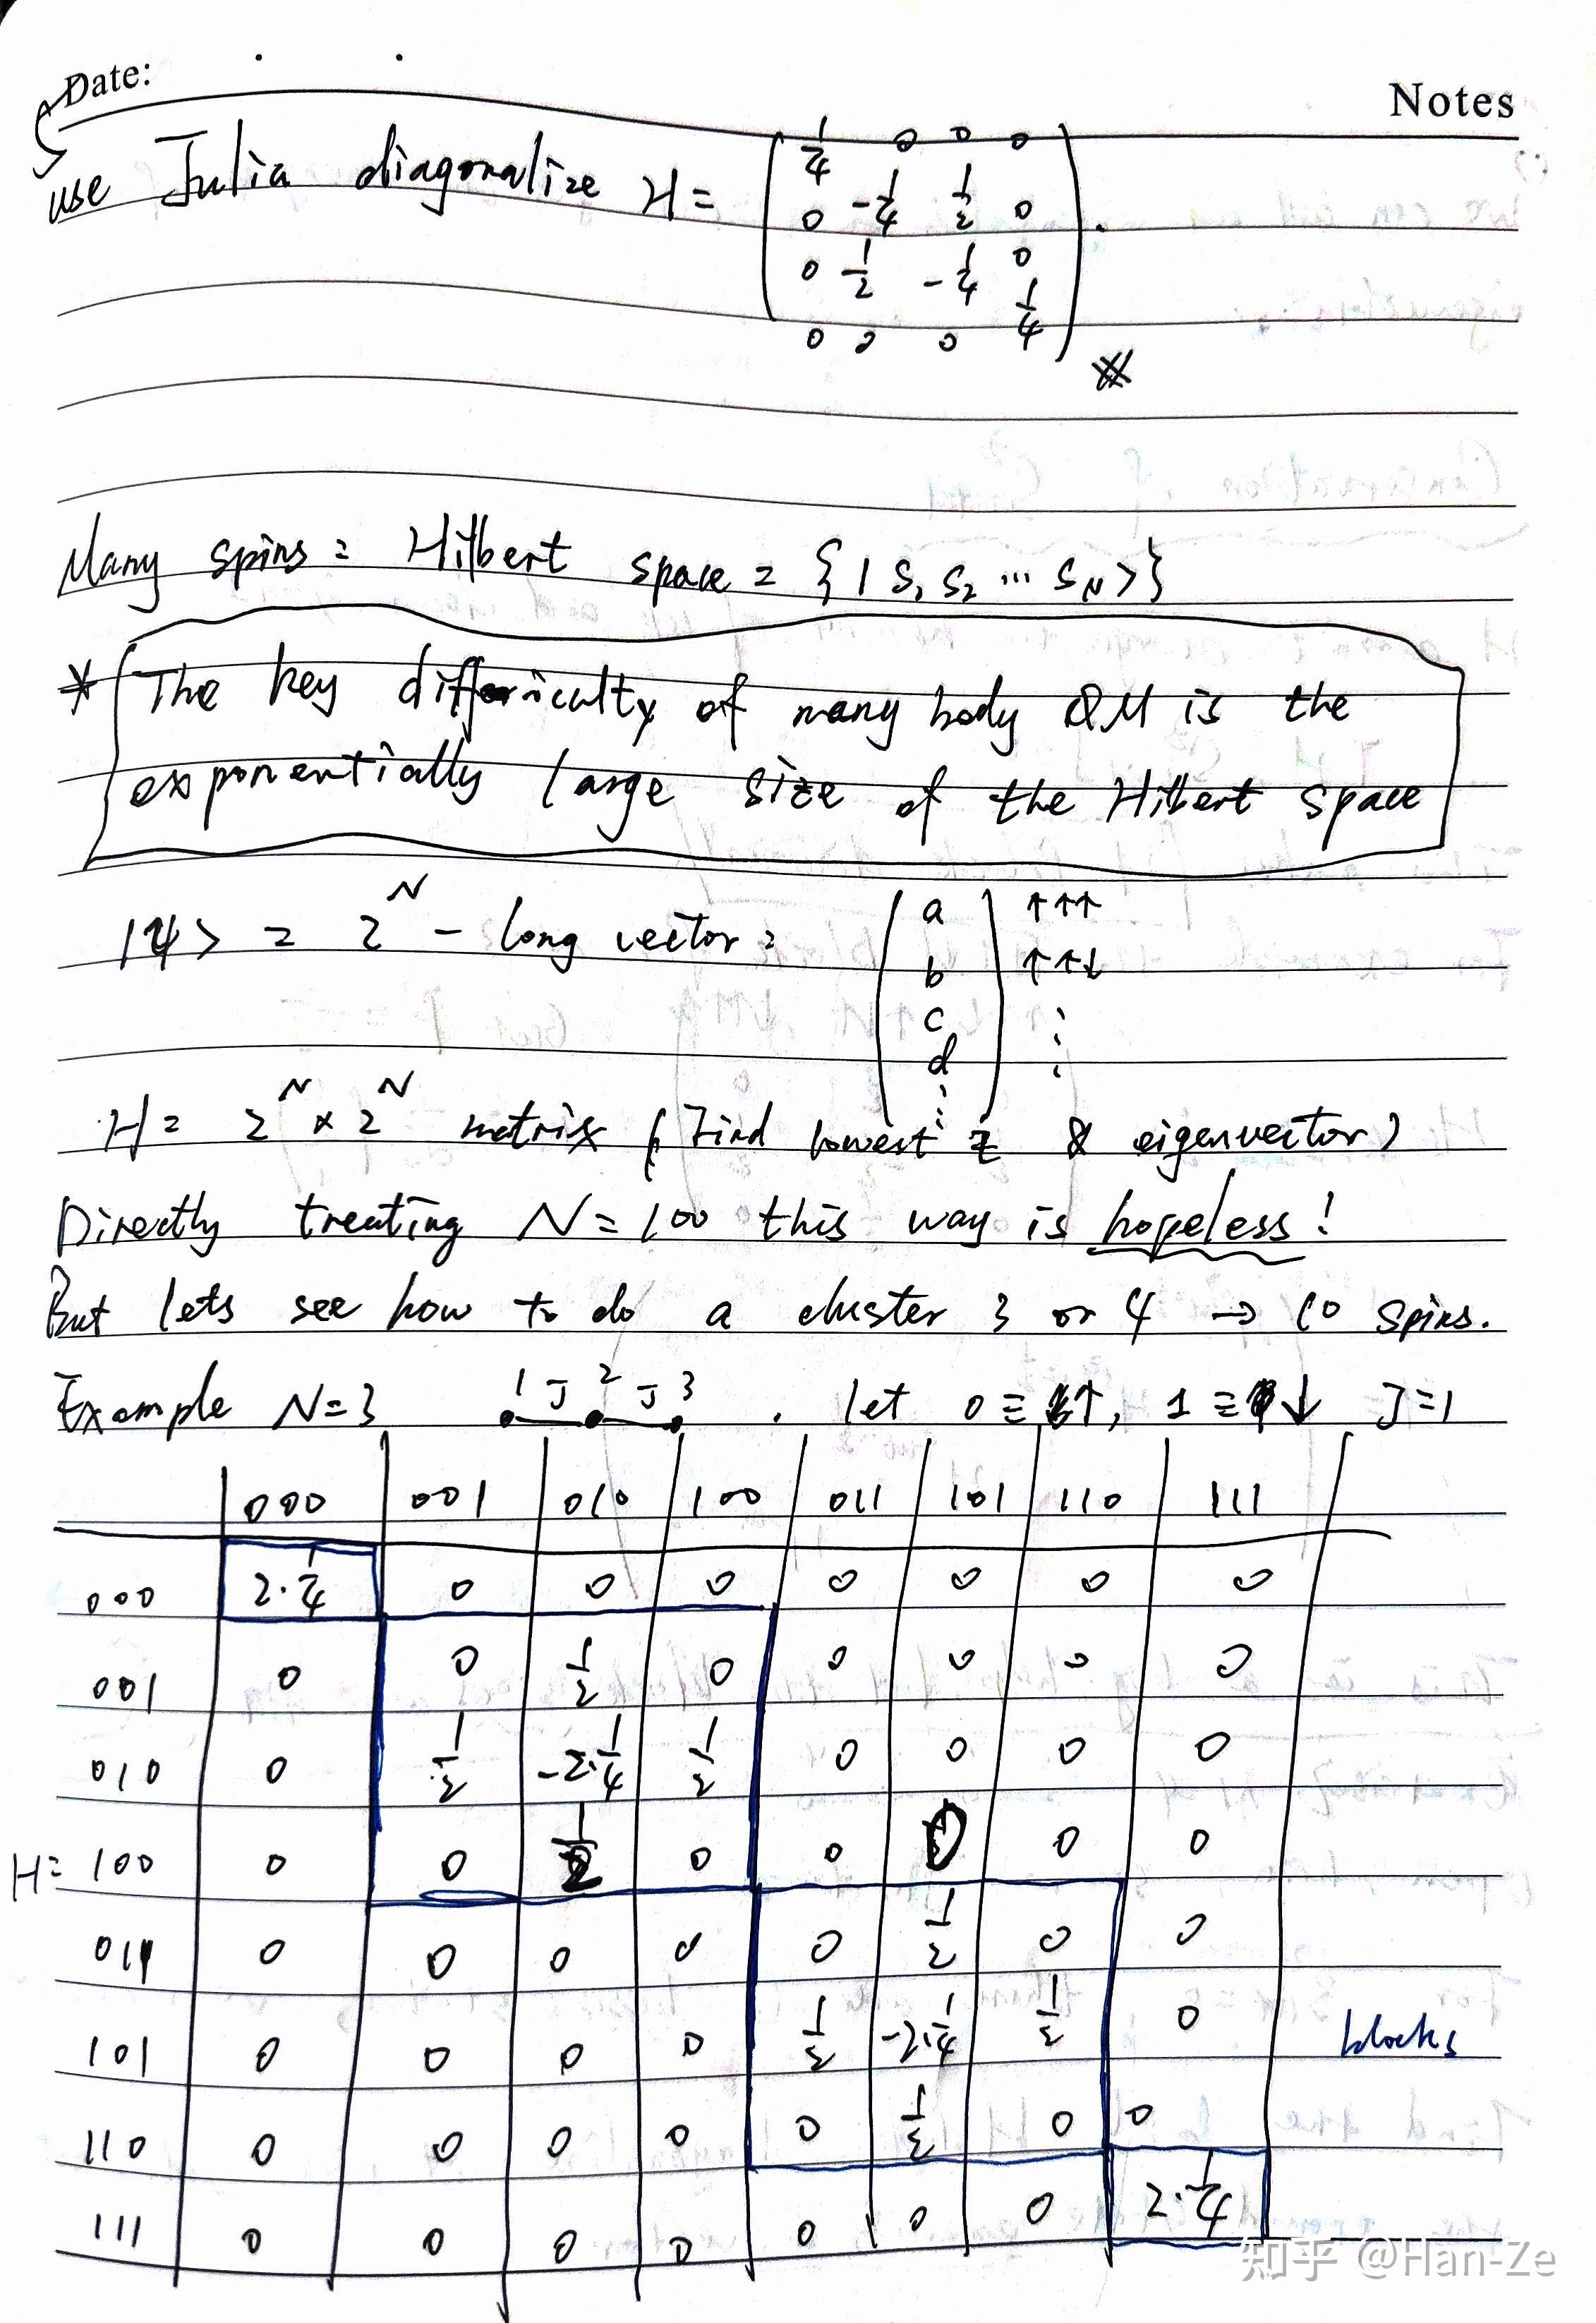 Date:
Notes
use Julia diagonalize H = ( 1/4 0 0 0
0 -1/4 1/2 0
0 1/2 -1/4 0
0 0 0 1/4 ).
Many spins = Hilbert space = { | S1 S2 ... SN > }
* The key difficulty of many body QM is the
exponentially large size of the Hilbert space
|ψ> = 2^N - long vector = ( a ↑↑↑
b ↑↑↓
c ⋮
d ⋮
⋮ )
H = 2^N × 2^N matrix ( Find lowest E & eigenvector )
Directly treating N = 100 this way is hopeless!
But lets see how to do a cluster 3 or 4 → 10 spins.
Example N=3 1 J 2 J 3 . let 0 ≡ ↑, 1 ≡ ↓ J=1
000 001 010 100 011 101 110 111
000 2·1/4 0 0 0 0 0 0 0
001 0 0 1/2 0 0 0 0 0
010 0 1/2 -2·1/4 1/2 0 0 0 0
H= 100 0 0 1/2 0 0 0 0 0
011 0 0 0 0 0 1/2 0 0
101 0 0 0 0 1/2 -2·1/4 1/2 0 blocks
110 0 0 0 0 0 1/2 0 0
111 0 0 0 0 0 0 0 2·1/4
知乎 @Han-Ze